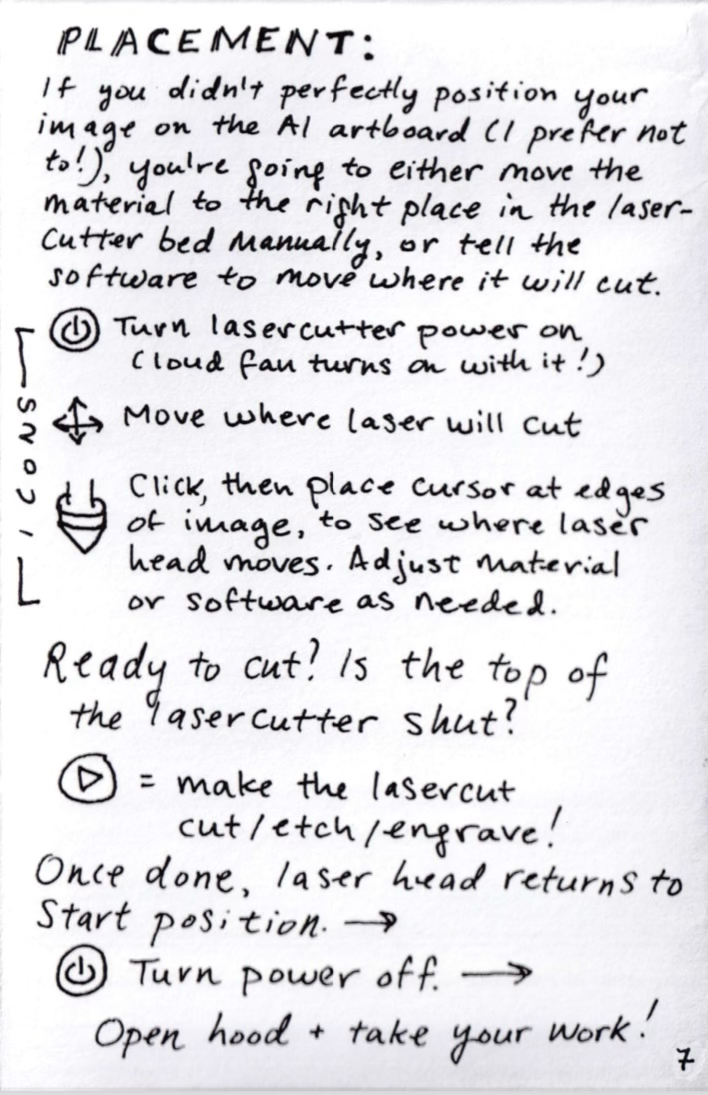 PLACEMENT:
If you didn't perfectly position your
image on the AI artboard (I prefer not
to!), you're going to either move the
material to the right place in the laser-
cutter bed manually, or tell the
software to move where it will cut.
ICONS
Turn lasercutter power on
(loud fan turns on with it!)
Move where laser will cut
Click, then place cursor at edges
of image, to see where laser
head moves. Adjust material
or software as needed.
Ready to cut? Is the top of
the lasercutter shut?
= make the lasercut
cut/etch/engrave!
Once done, laser head returns to
Start position. →
Turn power off. →
Open hood + take your work!
7